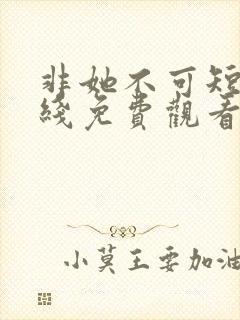 非她不可短
綫免費觀看
小莫王要加油